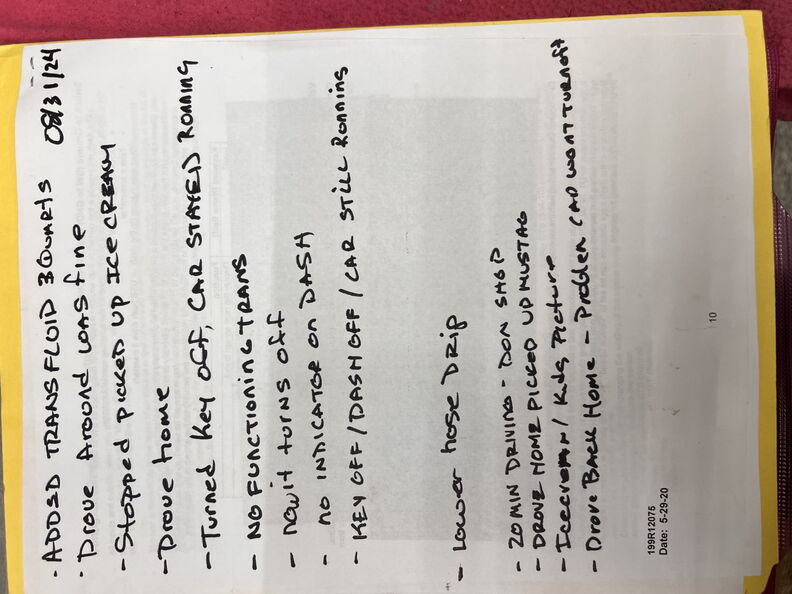 - ADDSD TRANSFLUID 3 QUARTS 08/31/24
- Drove Around WAS fine
- Stopped PICKED UP ICE CREAM
- Drove home
- Turned Key off, CAR STAYED RUNNING
- NO FUNCTIONING TRANS
- now it turns off
- no INDICATOR ON DASH
- KEY OFF / DASH OFF / CAR STILL RUNNING
- Lower hose Drip
- 20 MIN DRIVING - DON SHOP
- DROVE HOME PICKED UP MUSTAG
- Icecream / Kids Picture
- Drove BACK HOME - Problem CAR WONT TURN OFF
10
199R12075
Date: 5-29-20